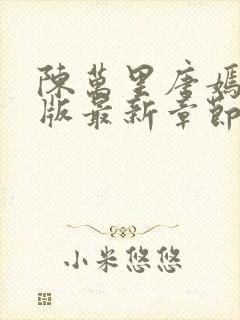 陳萬里唐嫣
版最新章節
小米悠悠